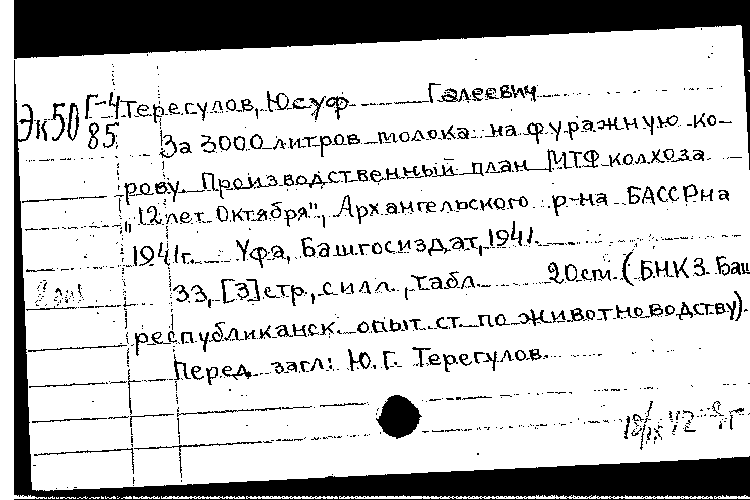 Эк50 Г-4/85 Терегулов, Юсуф Галеевич
За 3000 литров молока на фуражную ко-
рову. Производственный план МТФ колхоза
"12 лет Октября", Архангельского р-на БАССР на
1941г. Уфа, Башгосиздат, 1941.
33, [3] стр., с илл., табл. 20см. (БНКЗ. Баш
республиканск. опыт. ст. по животноводству).
Перед загл: Ю.Г. Терегулов.